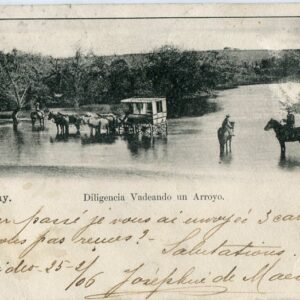 ay. Diligencia Vadeando un Arroyo.
passé je vous ai envoyés 3 ca
vous pas reçues? - Salutations.
des - 25-2/06 Joséphine de Mae